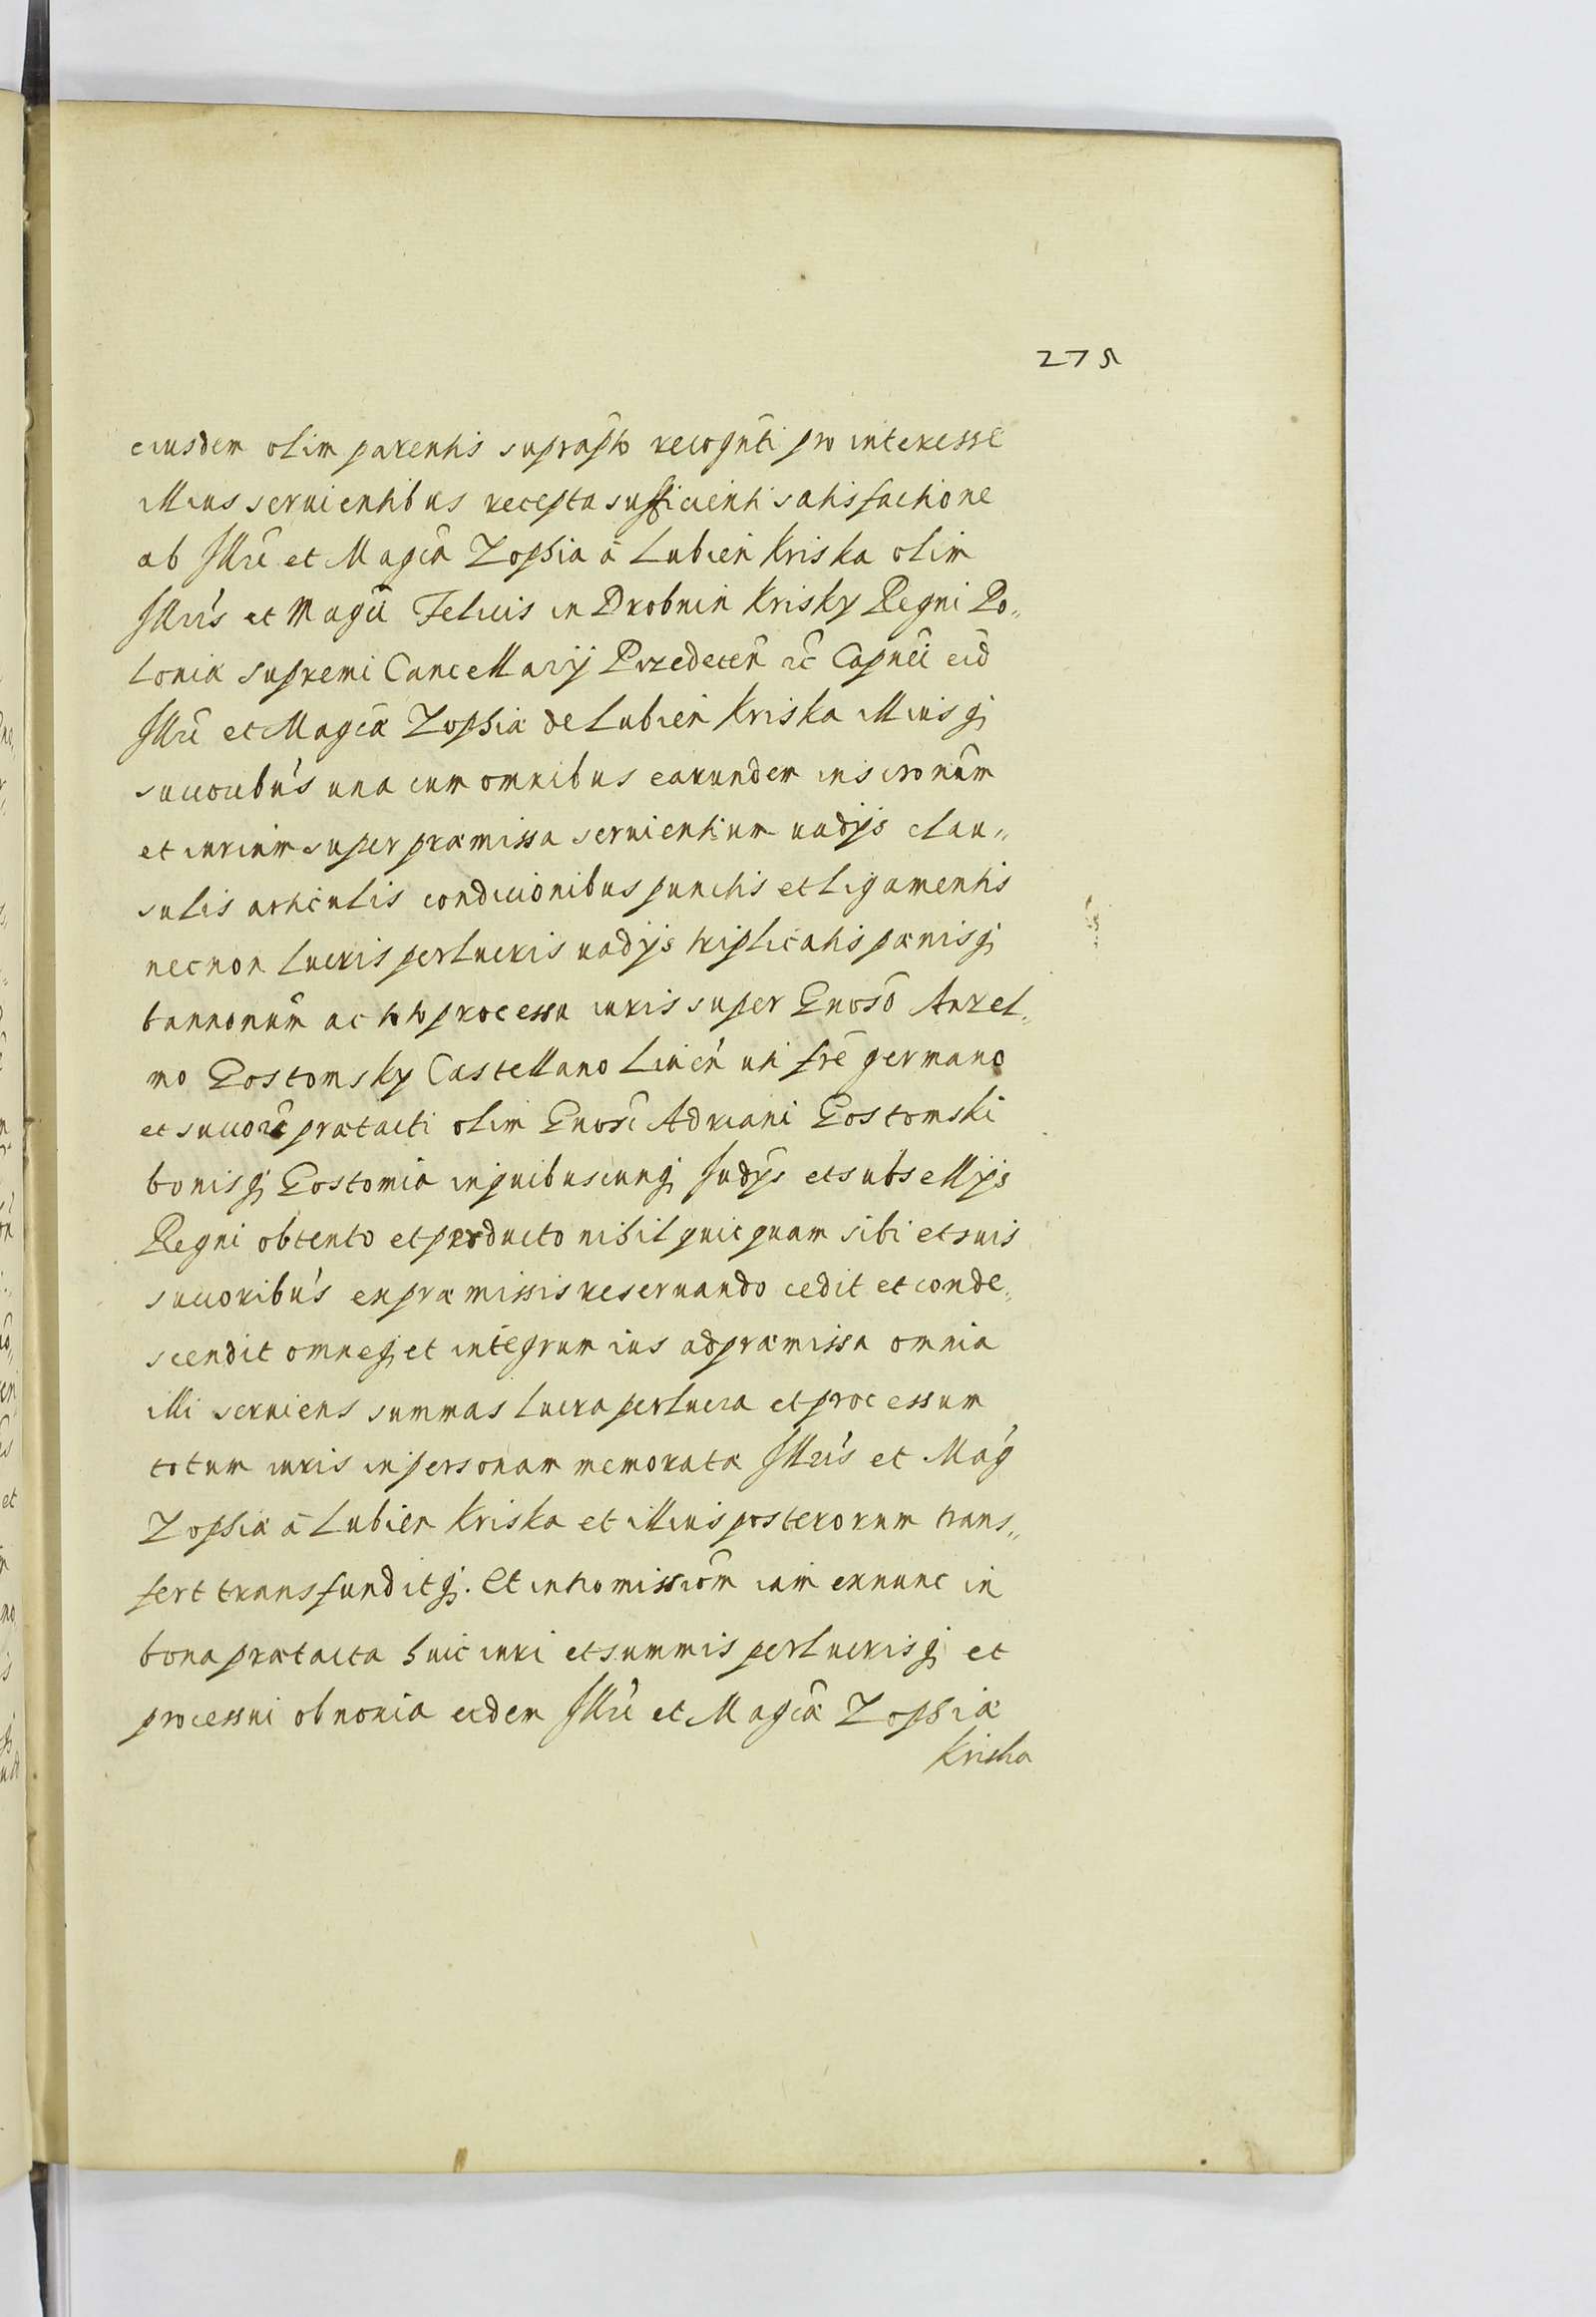 275
eiusdem olim parentis supraspto recognti pro interesse
illius seruientibus recepta sufficienti satisfactione
ab Illri et Magca Zophia a Lubien Kriska olim
Illris et Magci Felicis in Drobnin Krisky Regni Po„
loniæ supremi Cancellarij Przedecen ac Capnei eid
Illri et Magcæ Zophiæ de Lubien Kriska illiusq;
succoribus una cum omnibus earundem inscronum
et iurium super præmissa seruientium uadijs clau„
sulis articulis condicionibus punctis et ligamentis
necnon lucris perlucris uadijs triplicatis pænisq;
bannonum ac toto processu iuris super Gnoso Anzel„
mo Gostomsky Castellano Liuen uti fre germano
et succore prætacti olim Gnosi Adriani Gostomski
bonisq; Gostomia in quibuscunq; Iudijs et subsellijs
Regni obtento et producto nihil quicquam sibi et suis
succoribus ex præmissis reseruando cedit et conde„
scendit omneq; et integrum ius ad præmissa omnia
illi seruiens summas lucra perlucra et processum
totum iuris in personam memoratæ Illris et Mag
Zophiæ a Lubien Kriska et illius posterorum trans„
fert transfunditq;. Et intromissiom iam exnunc in
bona prætacta huic iuri et summis perlucrisq; et
processui obnoxia eidem Illri et Magcæ Zophiæ
Kriska